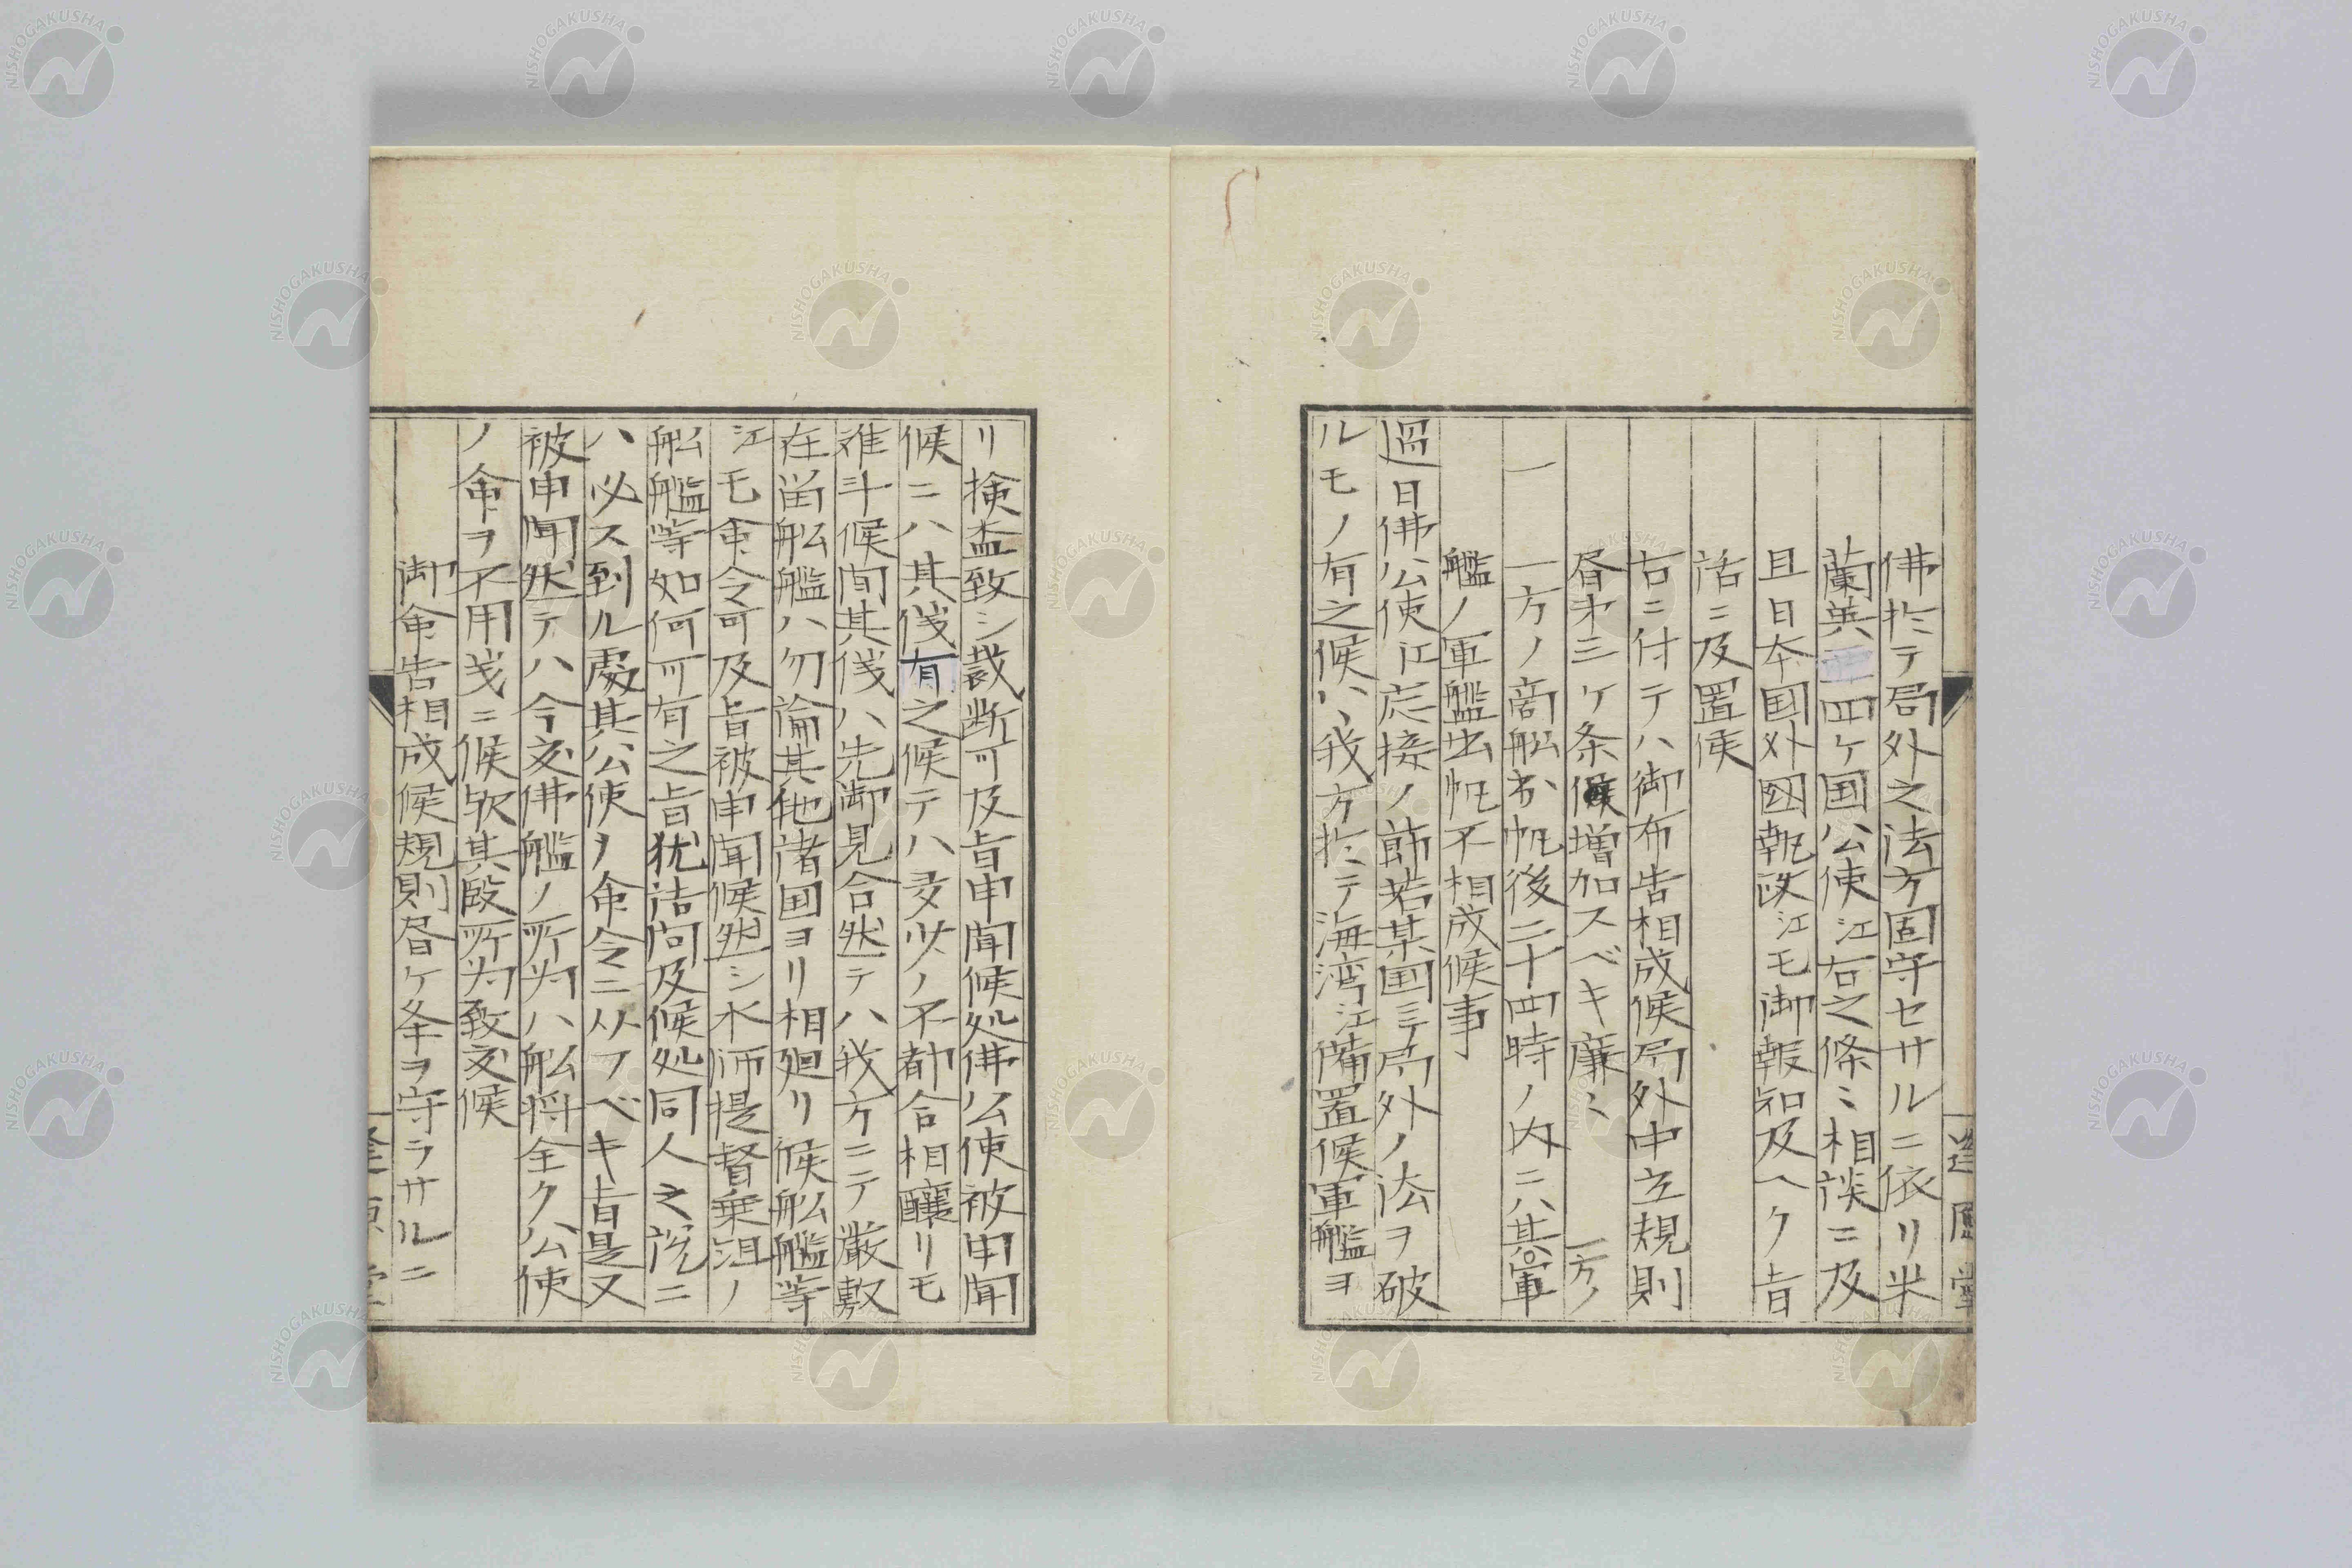 佛於テ局外之法方固守セサルニ依リ米
蘭英亜四ケ国公使江右之條ミ相談ニ及
且日本国外国執政江モ御報知及ヘク旨
話ニ及置候
右ニ付テハ御布告相成候局外中立規則
第三ケ条増加スベキ廉ミ
一方ノ
一 一方ノ商舩出帆後二十四時ノ内ニハ其軍
艦ノ軍艦出帆不相成候事
過日佛公使江応接ノ節若某国ミテ局外ノ法ヲ破
ルモノ有之候ハ我方於テ海湾江備置候軍艦ヲ
リ検査致シ裁断可及旨申聞候処佛公使被申聞
候ニハ其儀有之候テハ多少ノ不都合相醸リモ
難斗候間其儀ハ先御見合然テハ我方ニテ厳敷
在留舩艦ハ勿論其他諸国ヨリ相廻リ候舩艦等
江モ命令可及旨被申聞候然シ水師提督乗組ノ
舩艦等如何可有之旨猶詰問及候処同人之説ニ
ハ必ス到ル處其公使ノ命令ニ从フベキ旨是又
被申聞然テハ今交佛艦ノ所為ハ舩将全ク公使
ノ命ヲ不用儀ニ候欤其段所為致交候
御布告相成候規則ケ条ヲ守ラサルニ
NISHOGAKUSHA